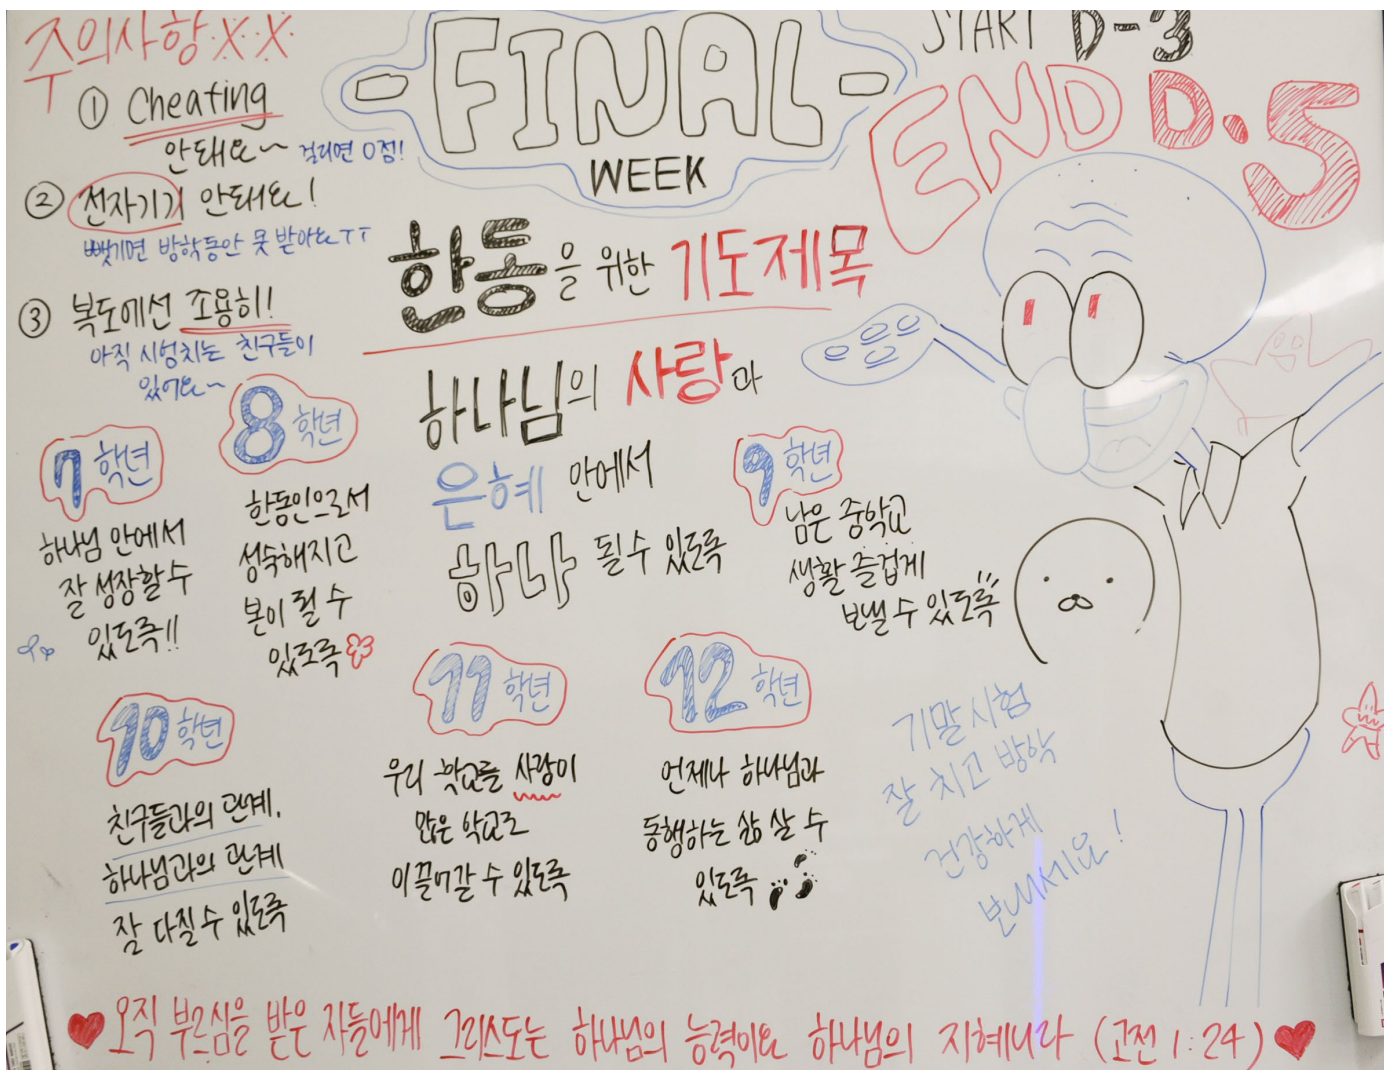 주의사항※※
① Cheating
안돼요~ 걸리면 0점!
② 전자기기 안돼요!
뺏기면 방학동안 못 받아요ㅜㅜ
③ 복도에선 조용히!
아직 시험치는 친구들이
있어요~
FINAL
WEEK
START D-3
END D.5
한동을 위한 기도제목
하나님의 사랑과
은혜 안에서
하나 될 수 있도록
7학년
하나님 안에서
잘 성장할 수
있도록!!
8학년
한동인으로서
성숙해지고
본이 될 수
있도록
9학년
남은 중학교
생활 즐겁게
보낼 수 있도록
10학년
친구들과의 관계,
하나님과의 관계
잘 다질 수 있도록
11학년
우리 학교를 사랑이
많은 학교로
이끌어갈 수 있도록
12학년
언제나 하나님과
동행하는 삶 살 수
있도록
기말시험
잘 치고 방학
건강하게
보내세요!
♥오직 부르심을 받은 자들에게 그리스도는 하나님의 능력이요 하나님의 지혜니라 (고전 1:24)♥